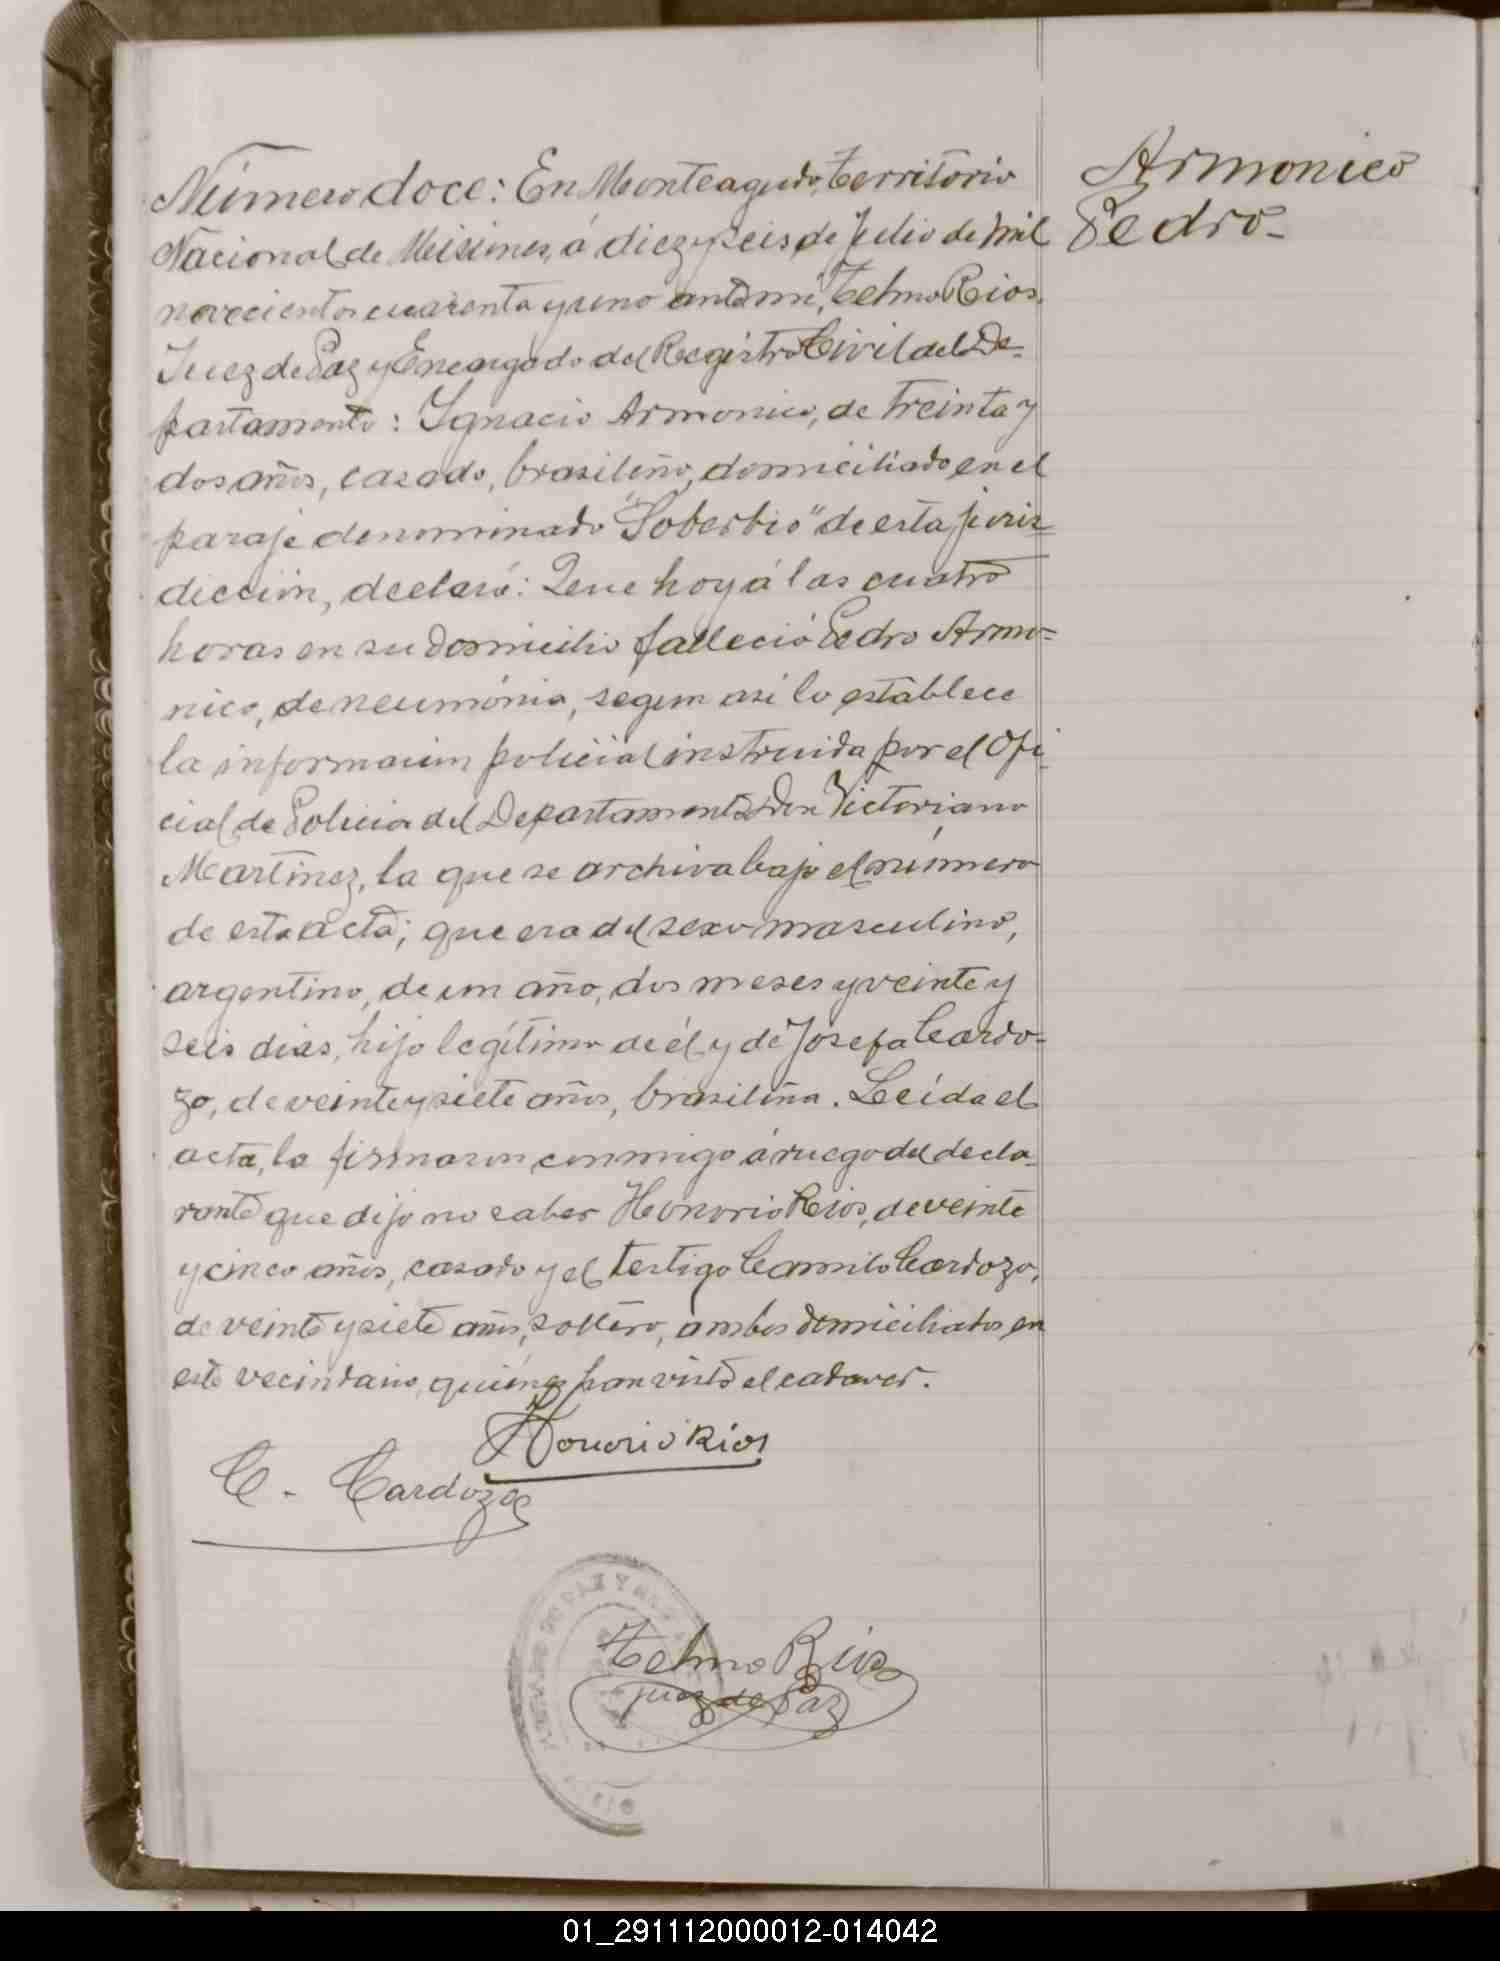 Armonico
Pedro-
Número doce: En Monteagudo, territorio
Nacional de Misiones, á diez y seis de Julio de mil
novecientos cuarenta y uno ante mí, Telmo Rios,
Juez de Paz y Encargado del Registro Civil del De-
partamento: Ignacio Armonico, de treinta y
dos años, casado, brasileño, domiciliado en el
paraje denominado "Soberbio" de esta juris-
dicción, declaró: Que hoy á las cuatro
horas en su domicilio falleció Pedro Armo-
nico, de neumónia, segun así lo establece
la informacion policial instruida por el Ofi-
cial de Policia del Departamento Don Victoriano
Martinez, la que se archiva bajo el número
de esta acta; que era del sexo masculino,
argentino, de un año, dos meses y veinte y
seis dias, hijo legítimo de él y de Josefa Cardo-
zo, de veinte y siete años, brasileña. Leída el
acta, la firmaron conmigo á ruego del decla-
rante que dijo no saber Honorio Rios, de veinte
y cinco años, casado y el testigo Camilo Cardozo,
de veinte y siete años, soltero, ambos domiciliados en
este vecindario, quiénes han visto el cadaver.
Honorio Rios
C. Cardozo
Telmo Rios
Juez de Paz
01_291112000012-014042